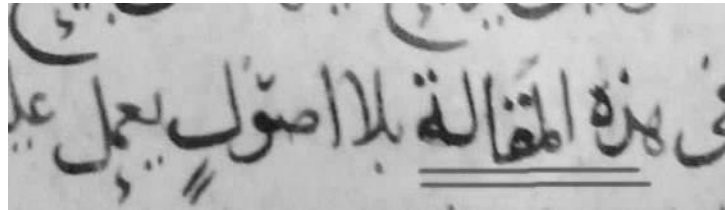 فى هذه المقالة بلا اصولٍ يعمل علي